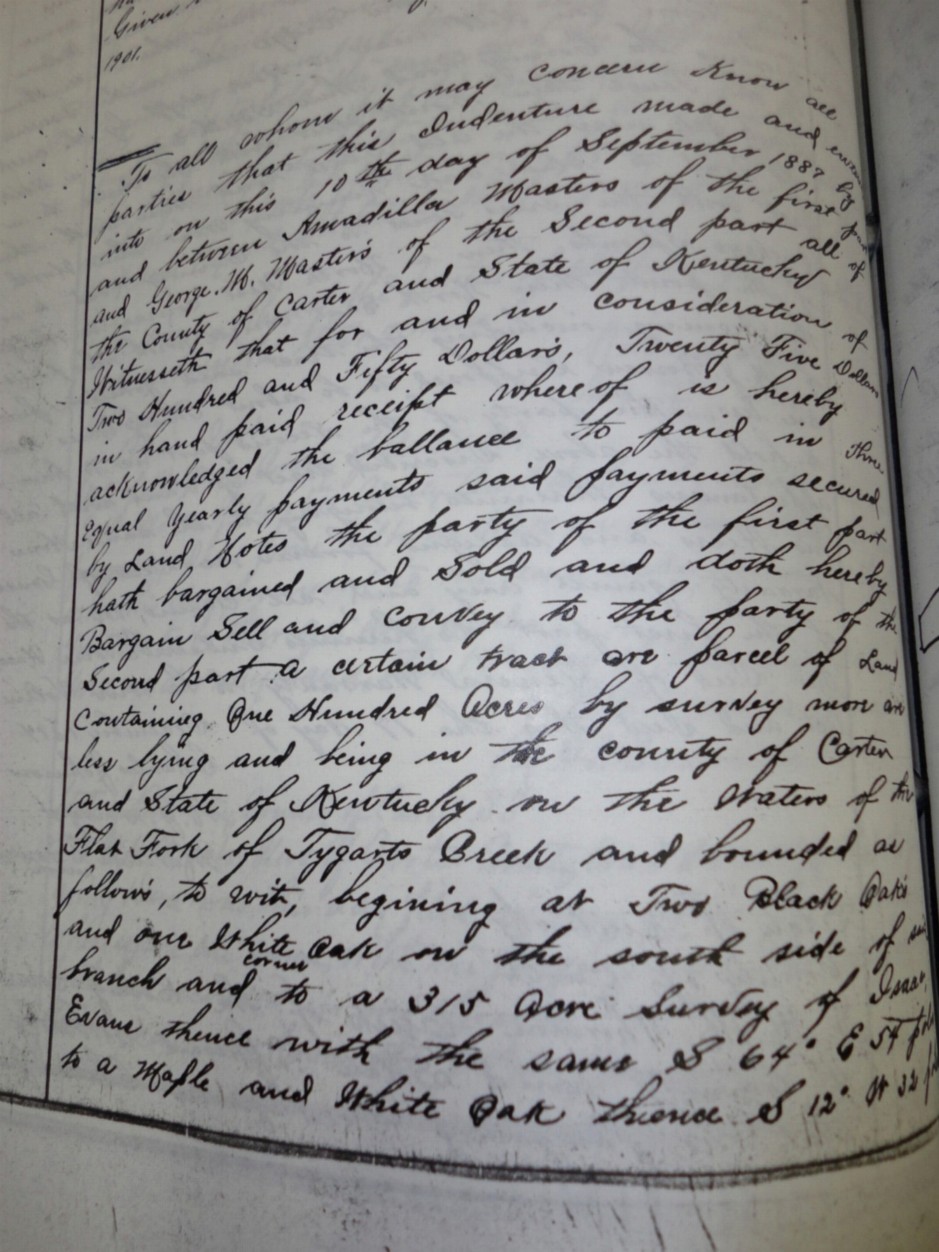 Given
1901.
To all whom it may concern Know all
parties that this Indenture made and
into on this 10th day of September 1887 by
and between Amadilla Masters of the first
and George. M. Masters of the Second part all of
the County of Carter and State of Kentucky
Witnesseth that for and in consideration of
Two Hundred and Fifty Dollars, Twenty Five Dollars
in hand paid receipt where of is hereby
acknowledged the ballance to paid in three
Equal Yearly payments said payments secured
by Land Notes the party of the first part
hath bargained and Sold and doth hereby
Bargain Sell and convey to the party of the
Second part a certain tract are parcel of Land
Containing One Hundred Acres by survey more are
less lying and being in the county of Carter
and State of Kentucky on the Waters of the
Flat Fork of Tygarts Creek and bounded as
follows, to wit, begining at Two Black Oaks
and one White Oak on the south side of
branch and corner to a 315 Acre Survey of Isaac
Evans thence with the same S 64° E 54
to a Maple and White Oak thence S 12° W 32